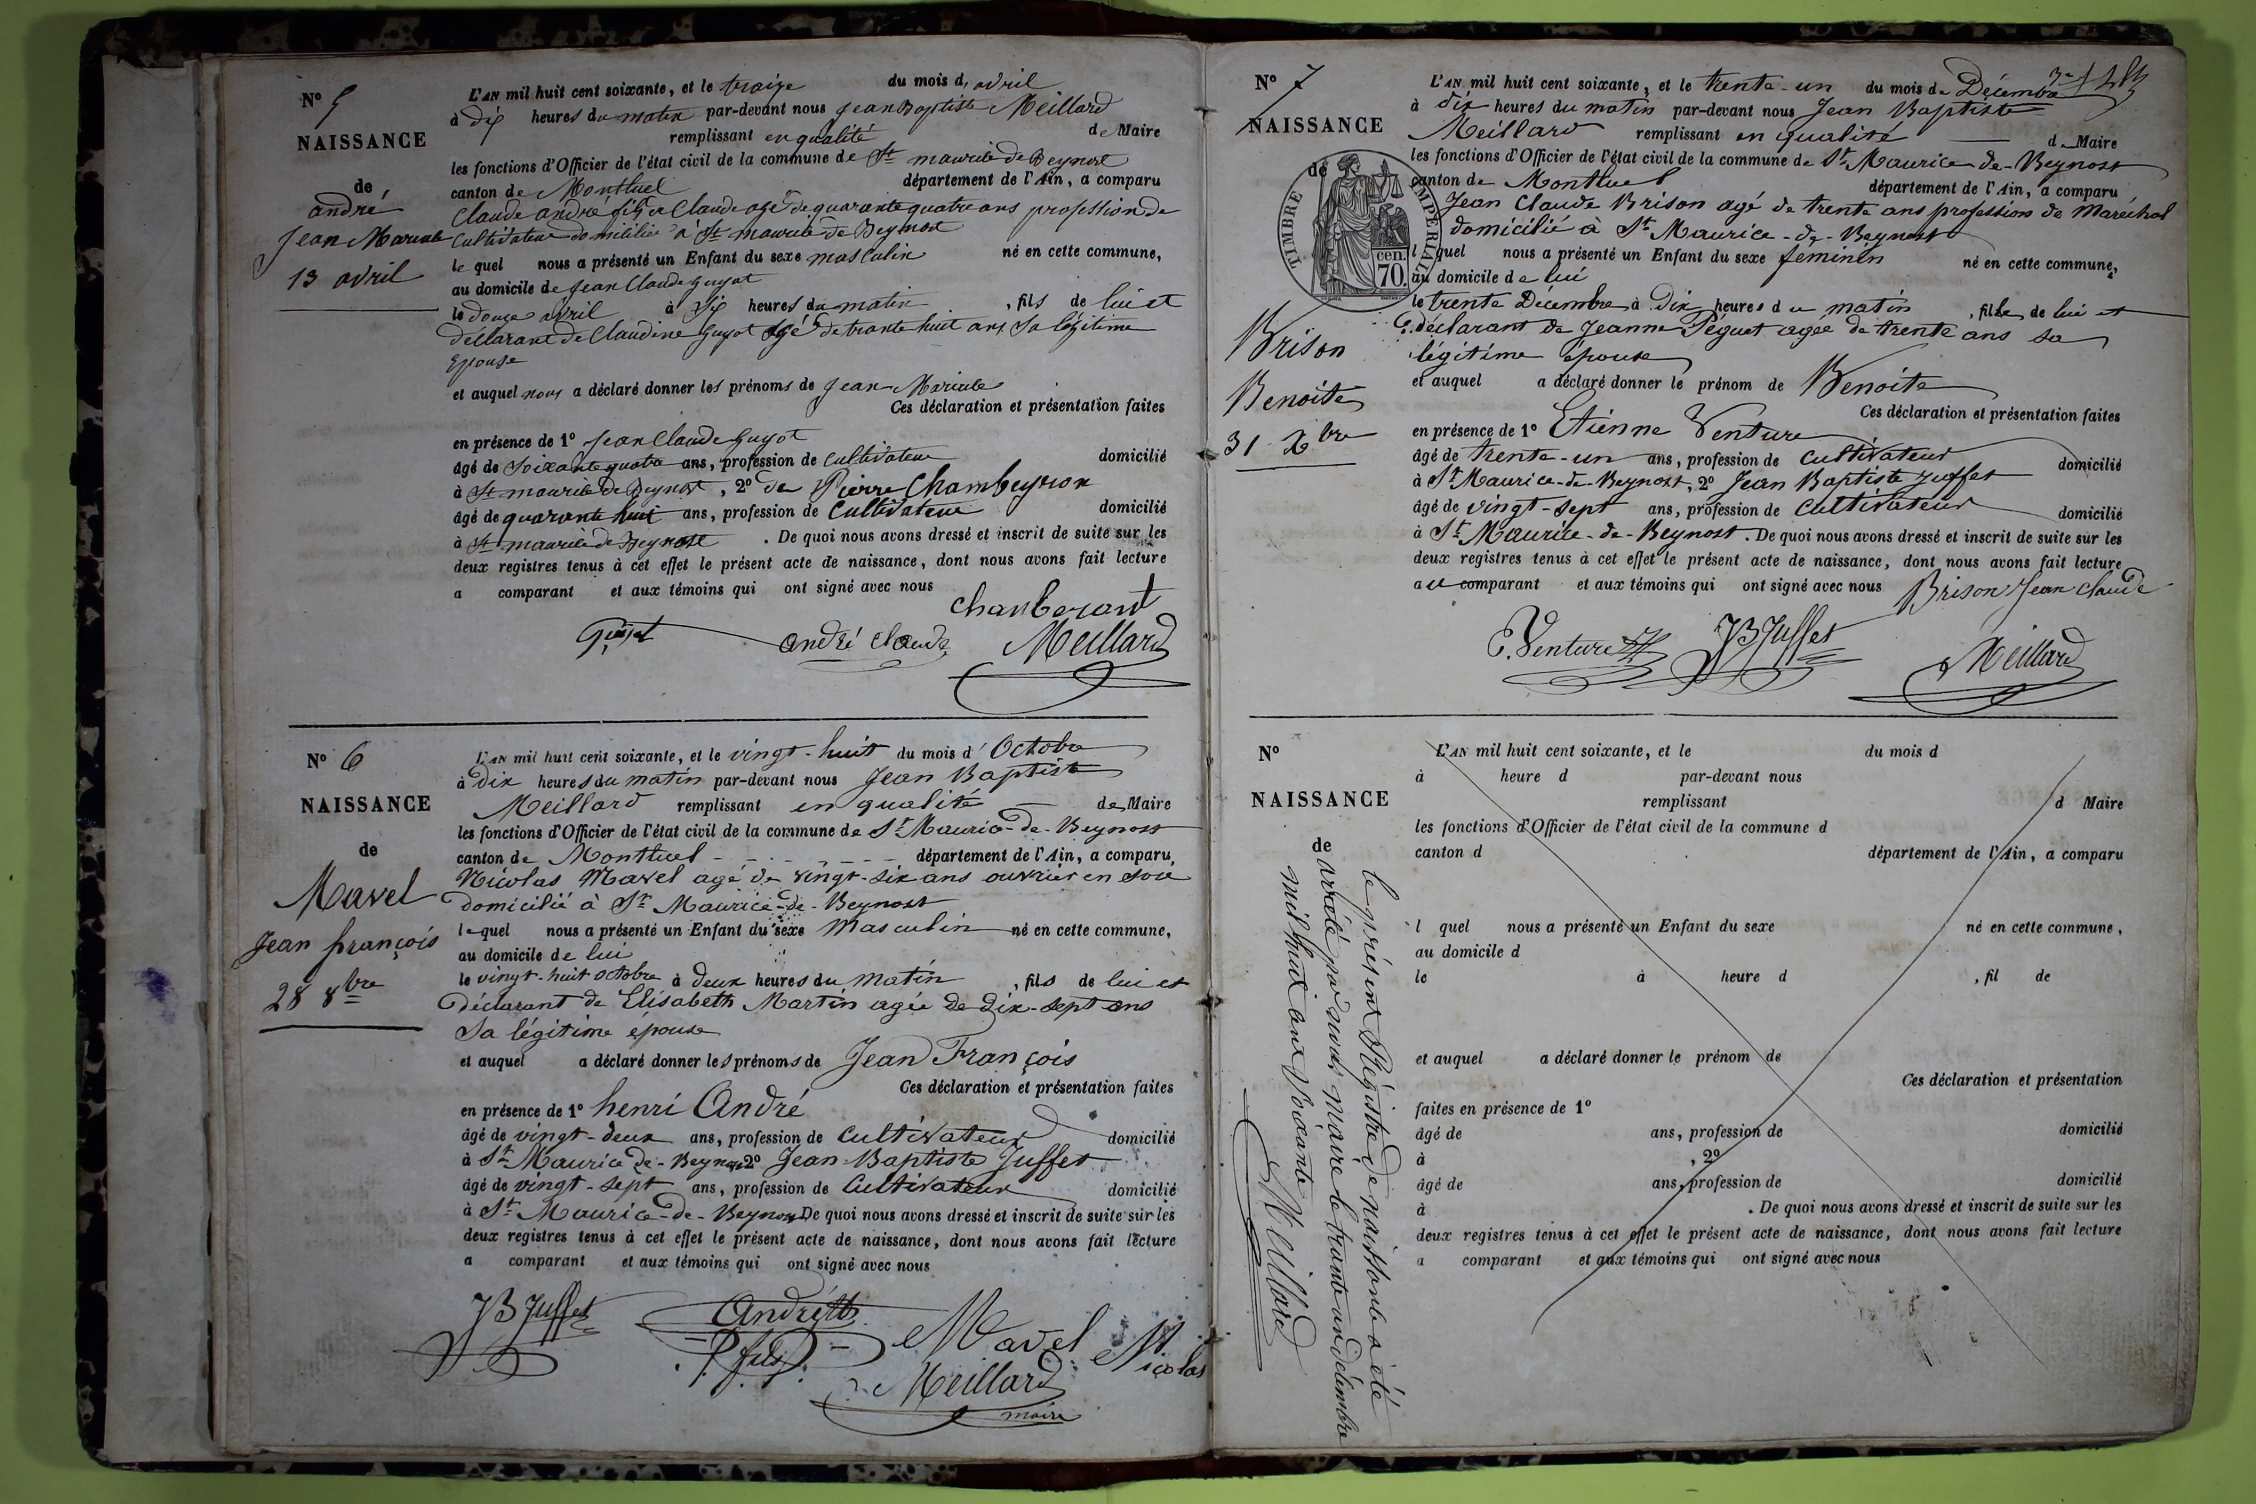 N° 5
NAISSANCE
de
andré
Jean Mariule
13 avril
L'AN mil huit cent soixante, et le traize du mois d' avril
à dix heures du matin par-devant nous jean Baptiste Meillard
remplissant en qualité de Maire
les fonctions d'Officier de l'état civil de la commune de St maurice de Beynost
canton de Montluel département de l'Ain, a comparu
Claude andré fils de Claude agé de quarante quatre ans profession de
Cultivateur domicilié à St maurice de Beynost
le quel nous a présenté un Enfant du sexe masculin né en cette commune,
au domicile de Jean Claude guyot
le douze avril à dix heures du matin, fils de lui et
déclarant de Claudine guyot agé de trante huit ans Sa légitime
Epouse
et auquel nous a déclaré donner les prénoms de Jean Mariule
Ces déclaration et présentation faites
en présence de 1° Jean Claude guyot
âgé de soixante quatre ans, profession de Cultivateur domicilié
à St maurice de Beynost, 2° de Pierre Chambeyron
âgé de quarante huit ans, profession de Cultivateur domicilié
à St maurice de Beynost. De quoi nous avons dressé et inscrit de suite sur les
deux registres tenus à cet effet le présent acte de naissance, dont nous avons fait lecture
a comparant et aux témoins qui ont signé avec nous
andré claude Meillard
N° 6
NAISSANCE
de
Mavel
Jean françois
28 8bre
L'AN mil huit cent soixante, et le vingt-huit du mois d' Octobre
à dix heures du matin par-devant nous Jean Baptiste
Meillard remplissant en qualité de Maire
les fonctions d'Officier de l'état civil de la commune de St Maurice-de-Beynost
canton de Montluel département de l'Ain, a comparu
Nicolas Mavel agé de vingt-six ans ouvrier en soie
domicilié à St Maurice-de-Beynost
lequel nous a présenté un Enfant du sexe Masculin né en cette commune,
au domicile de lui
le vingt-huit octobre à deux heures du matin, fils de lui et
déclarant de Elisabeth Martin agée de dix-sept ans
Sa légitime épouse
et auquel a déclaré donner les prénoms de Jean François
Ces déclaration et présentation faites
en présence de 1° henri André
âgé de vingt-deux ans, profession de Cultivateur domicilié
à St Maurice-de-Beynost 2° Jean-Baptiste Juffet
âgé de vingt-sept ans, profession de Cultivateur domicilié
à St Maurice-de-Beynost De quoi nous avons dressé et inscrit de suite sur les
deux registres tenus à cet effet le présent acte de naissance, dont nous avons fait lecture
a comparant et aux témoins qui ont signé avec nous
JB Juffet André Mavel Nicolas
fils
Meillard
maire
N° 7
NAISSANCE
de
TIMBRE IMPERIAL
cen. 70.
Brison
Benoite
31 Xbre
L'AN mil huit cent soixante, et le trente-un du mois de Décembre
à dix heures du matin par-devant nous Jean Baptiste
Meillard remplissant en qualité de Maire
les fonctions d'Officier de l'état civil de la commune de St Maurice-de-Beynost
canton de Montluel département de l'Ain, a comparu
Jean Claude Brison agé de trente ans profession de Maréchal
domicilié à St Maurice-de-Beynost
l quel nous a présenté un Enfant du sexe féminin né en cette commune,
au domicile de lui
le trente Décembre à dix heures du matin, fille de lui et
déclarant de Jeanne Péguet agée de trente ans sa
légitime épouse
et auquel a déclaré donner le prénom de Benoite
Ces déclaration et présentation faites
en présence de 1° Etiènne Venture
âgé de trente-un ans, profession de Cultivateur domicilié
à St Maurice-de-Beynost, 2° Jean Baptiste Juffet
âgé de vingt-sept ans, profession de Cultivateur domicilié
à St Maurice-de-Beynost. De quoi nous avons dressé et inscrit de suite sur les
deux registres tenus à cet effet le présent acte de naissance, dont nous avons fait lecture
au comparant et aux témoins qui ont signé avec nous Brison Jean Claude
E. Venture JB Juffet Meillard
N°
NAISSANCE
de
L'AN mil huit cent soixante, et le du mois d
à heure d par-devant nous
remplissant d Maire
les fonctions d'Officier de l'état civil de la commune d
canton d département de l'Ain, a comparu
l quel nous a présenté un Enfant du sexe né en cette commune,
au domicile d
le à heure d, fil de
et auquel a déclaré donner le prénom de
Ces déclaration et présentation
faites en présence de 1°
âgé de ans, profession de domicilié
à, 2°
âgé de ans, profession de domicilié
à. De quoi nous avons dressé et inscrit de suite sur les
deux registres tenus à cet effet le présent acte de naissance, dont nous avons fait lecture
a comparant et aux témoins qui ont signé avec nous
le présent Régistre de naissance a été
arrêté par nous, maire le trante un décembre
mil huit cent soixante
Meillard